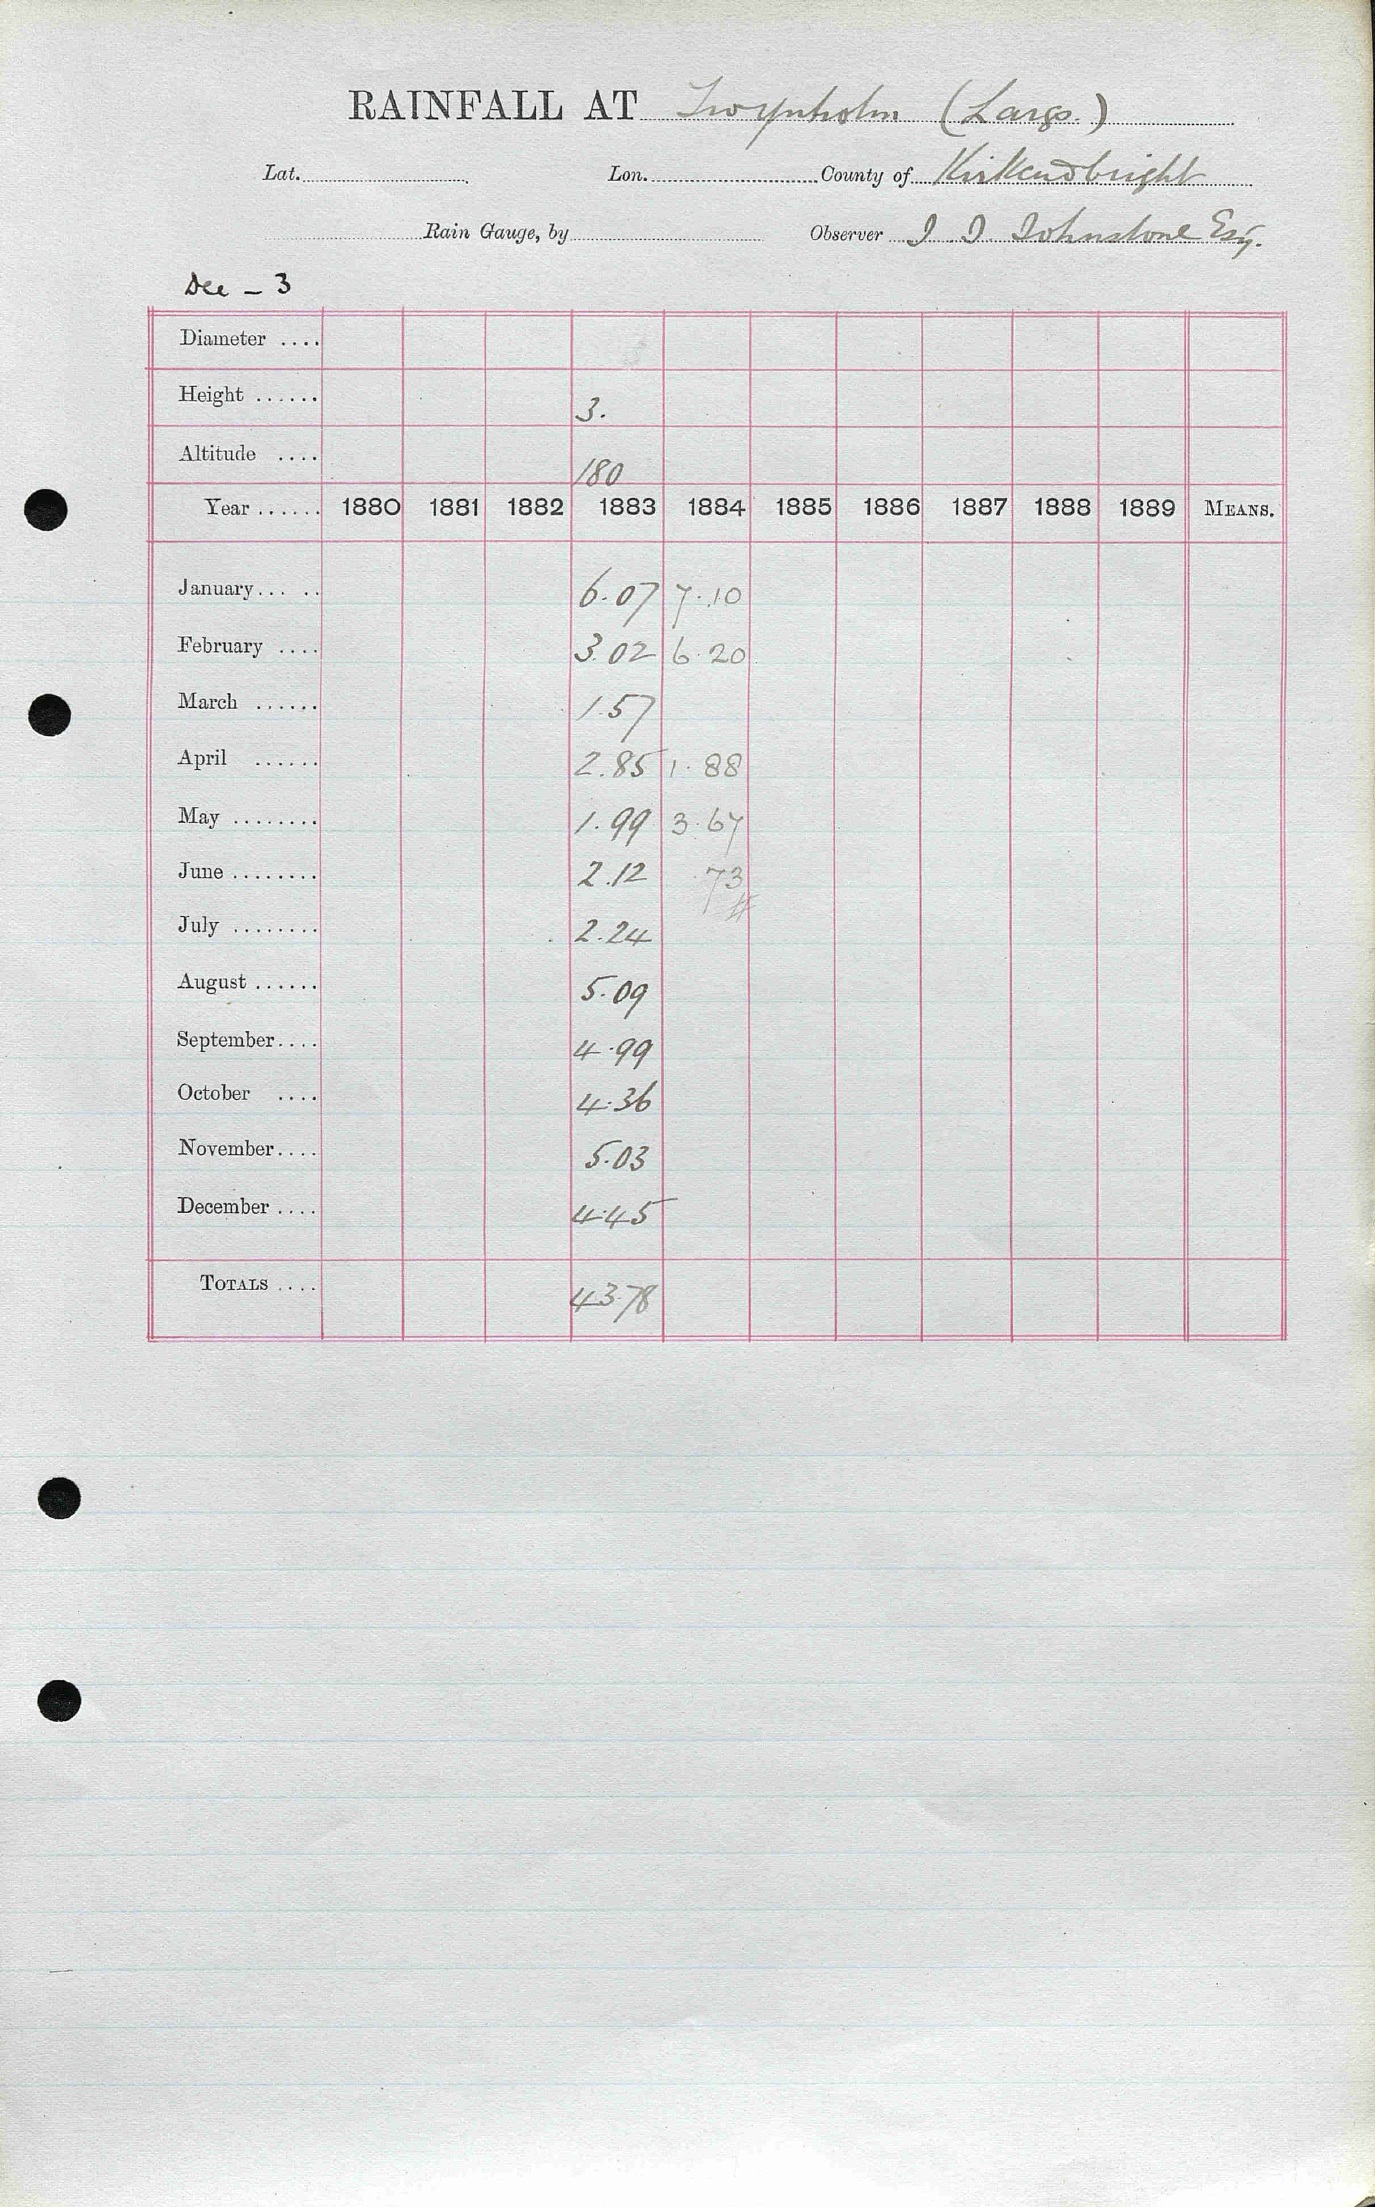 RAINFALL AT Twynholm (Largs)
Lat. Lon. County of Kirkcudbright
Rain Gauge, by Observer J. J. Johnstone Esq.
Dee - 3
Diameter ....
Height ...... 3.
Altitude .... 180
Year ...... 1880 1881 1882 1883 1884 1885 1886 1887 1888 1889 MEANS.
January... .. 6.07 7.10
February .... 3.02 6.20
March ...... 1.57
April ...... 2.85 1.88
May ........ 1.99 3.67
June ........ 2.12 .73
July ........ 2.24
August ...... 5.09
September.... 4.99
October .... 4.36
November.... 5.03
December .... 4.45
TOTALS .... 43.78